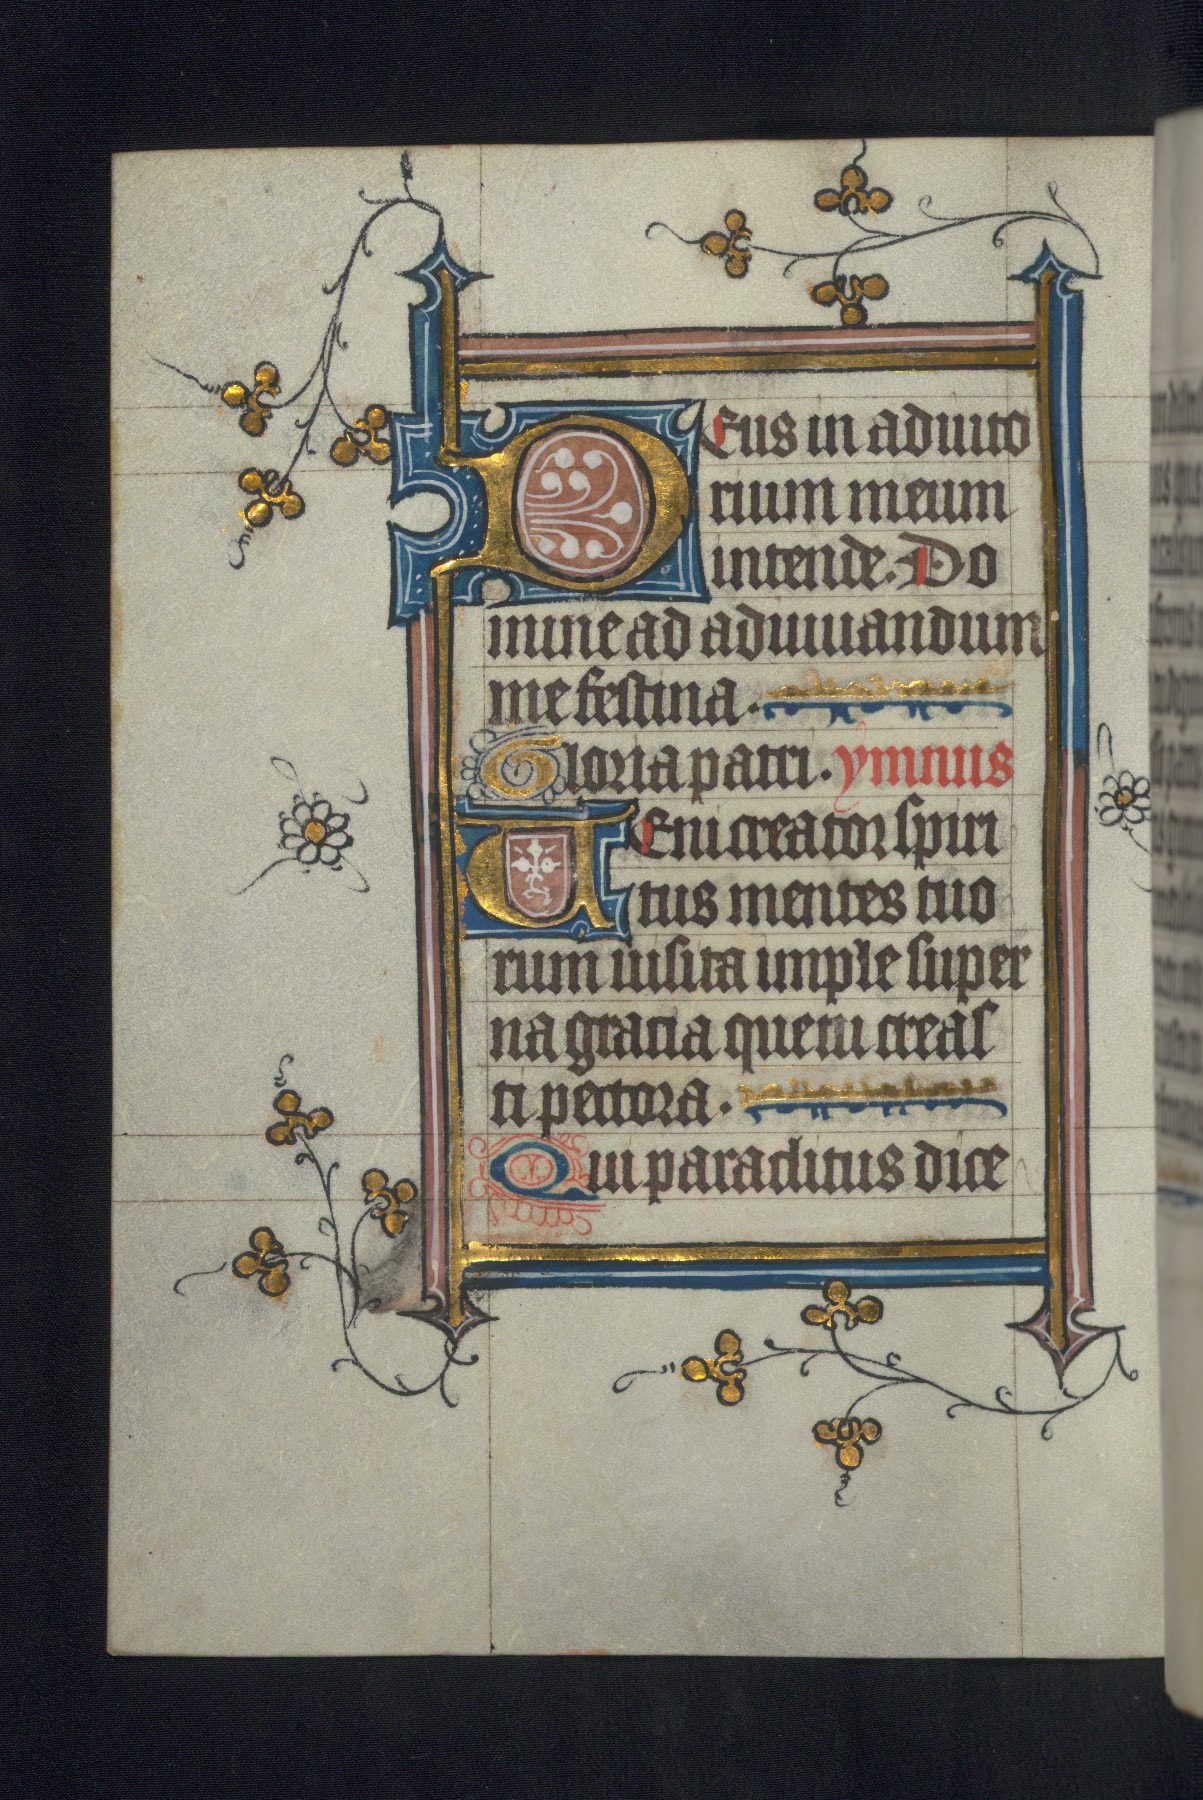 Deus in adiuto
rium meum
intende. Do
mine ad adiuuandum
me festina.
Gloria patri. ymnus
Ueni creator spiri
tus mentes tuo
rum uisita imple super
na gracia que tu creas
ti pectora.
Qui paraclitus dice